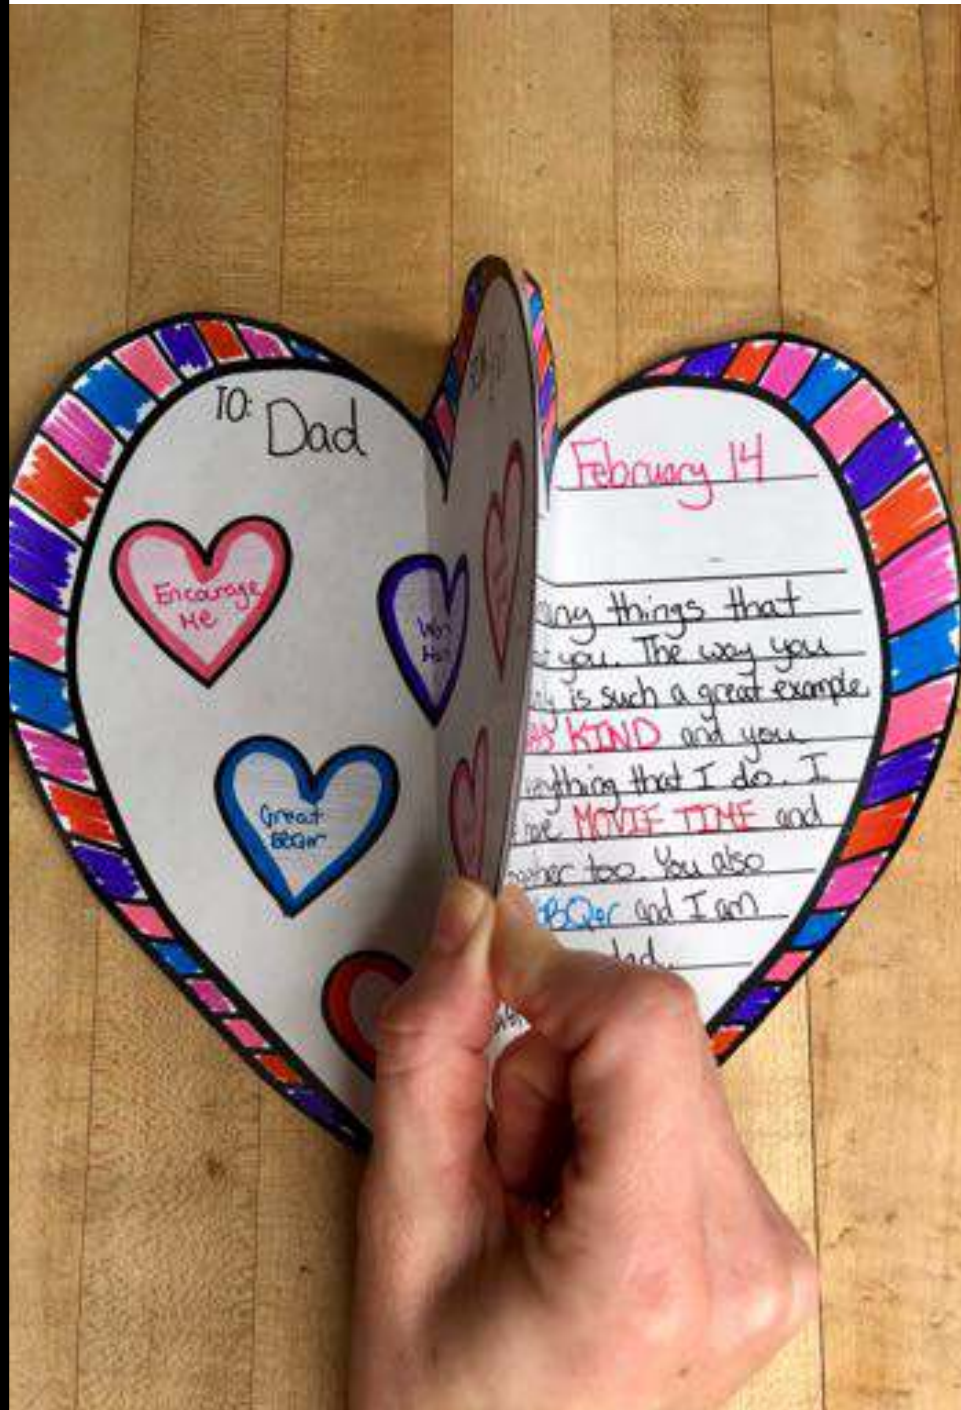 TO:
Dad
Encourage
Me
Great
BBQer
February 14
things that
you. The way you
is such a great example
KIND and you
that I do. I
MOVIE TIME and
too. You also
BQer and I am
dad.